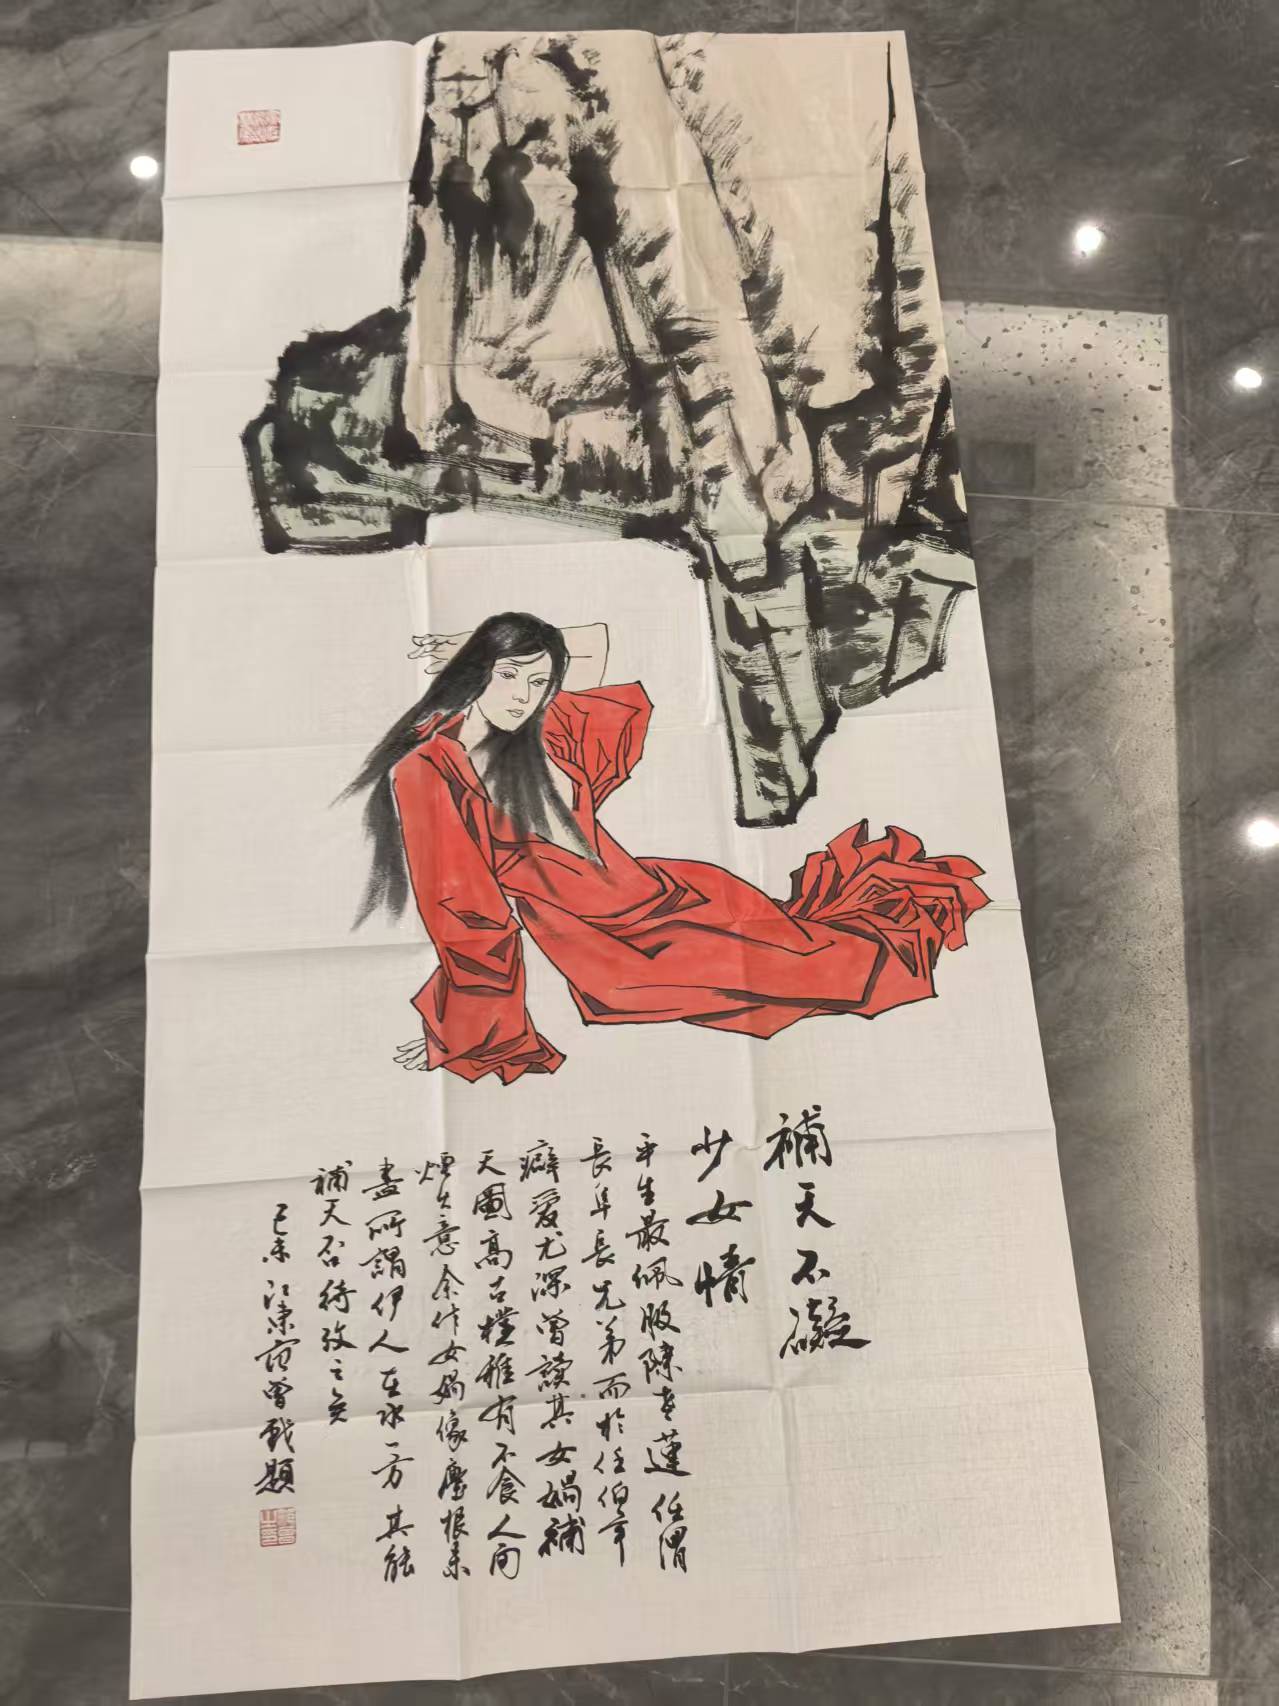 補天不礙
少女情
平生最佩服陳老蓮任渭
長阜長兄弟而於任伯年
癖愛尤深曾讀其女媧補
天圖高古樸雅有不食人间
煙火意余作女媧像塵根未
盡所謂伊人在水一方其能
補天否待攷之矣
己未江東范曾戲題